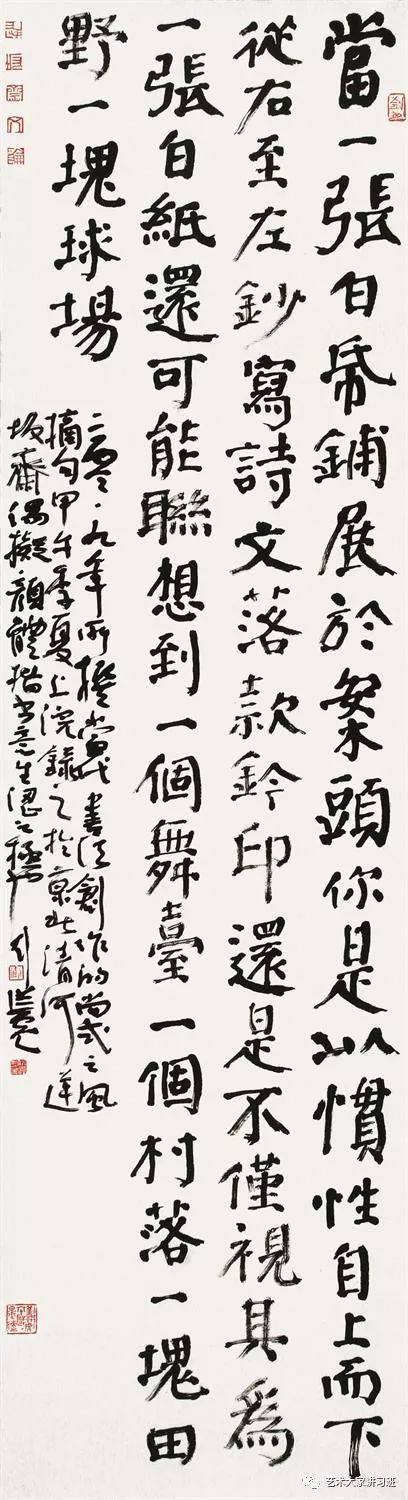 當一張白帋鋪展於案頭你是以慣性自上而下
從右至左鈔寫詩文落款鈐印還是不僅視其爲
一張白紙還可能聯想到一個舞臺一個村落一塊田
野一塊球場
二零〇九年所撰當代書法創作的尚式之風
摘句甲午季夏上浣錄之於京北清河蓮
坂齋偶擬顏體楷書意生澀之極
艺术大家讲习班